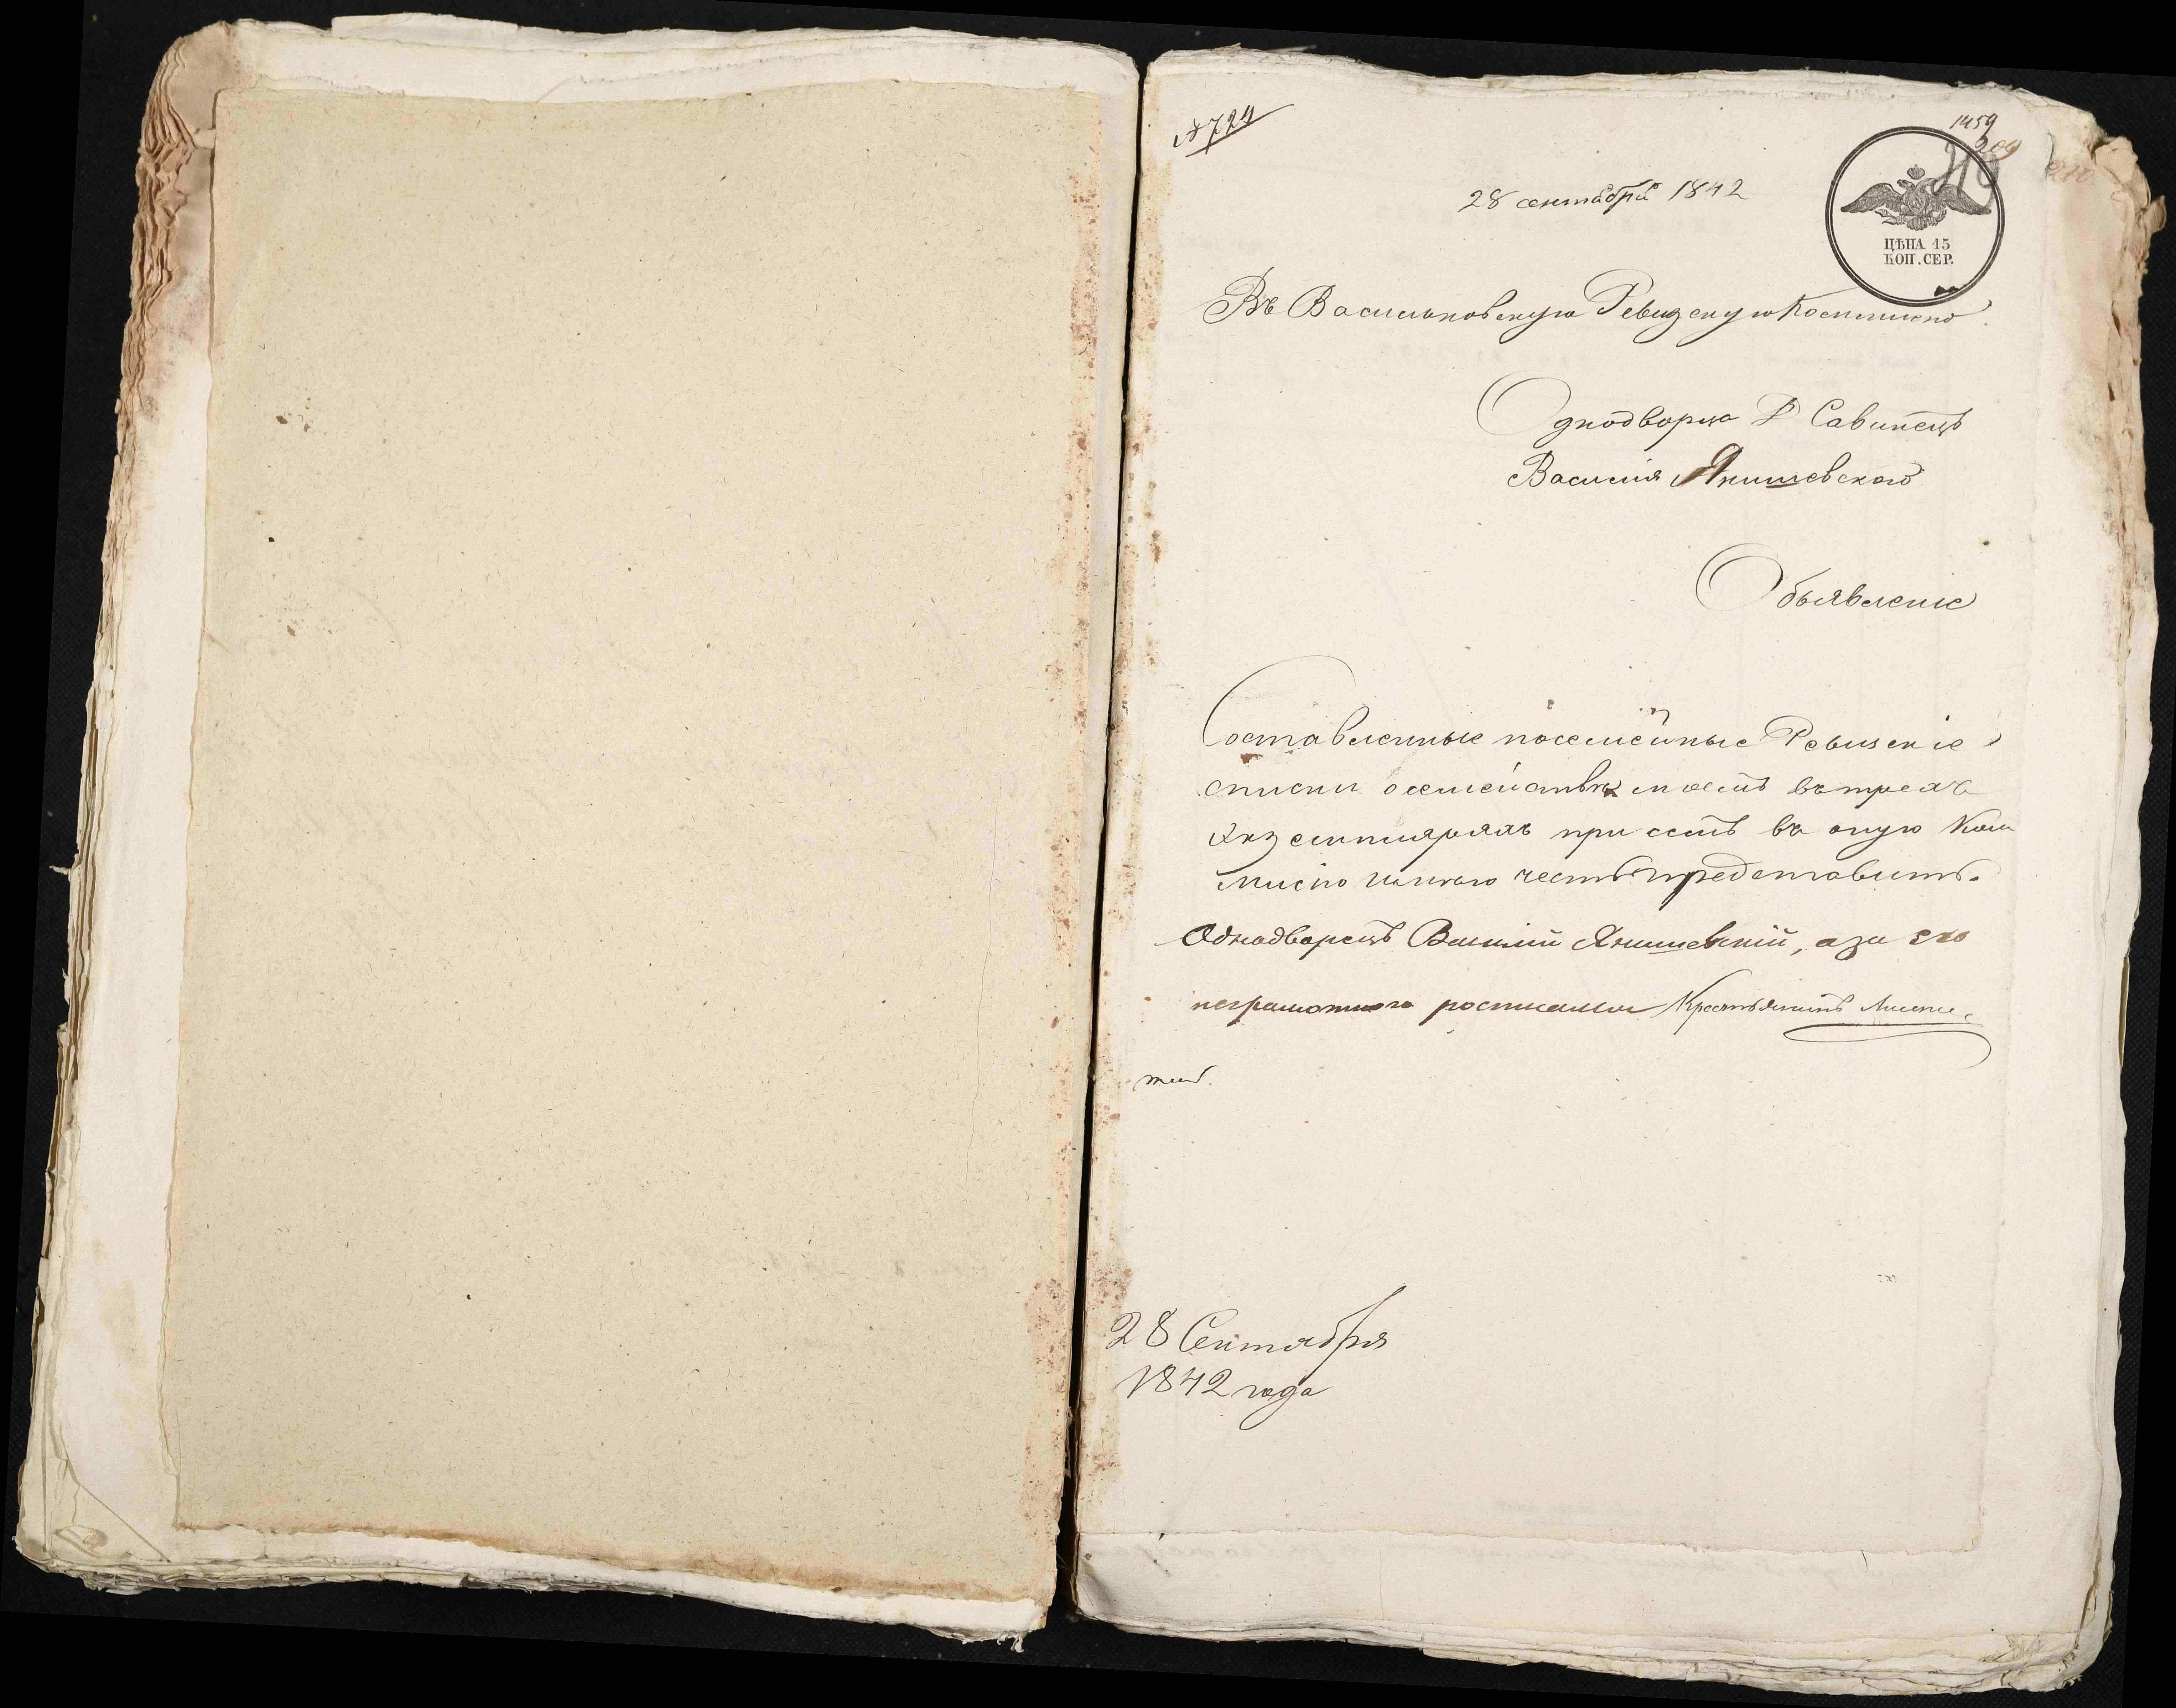 № 724
1459
209
28 сентября 1842
ЦѢНА 15
КОП. СЕР.
Въ Васильковскую Ревизскую Коммисию
Однодворца Д Савинецъ
Василія Янишевского
Объявленіе
Составленные посемейные Ревизскіе
списки о семействе моемъ въ трехъ
Экземплярахъ при семъ въ оную Ком
мисію имѣю честь представить.
Однодворецъ Василій Янишевскій, а за его
неграмотного росписался Крестьянинъ
28 Сентября
1842 года